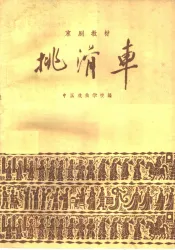 京剧教材
挑滑車
中国戏曲学院編